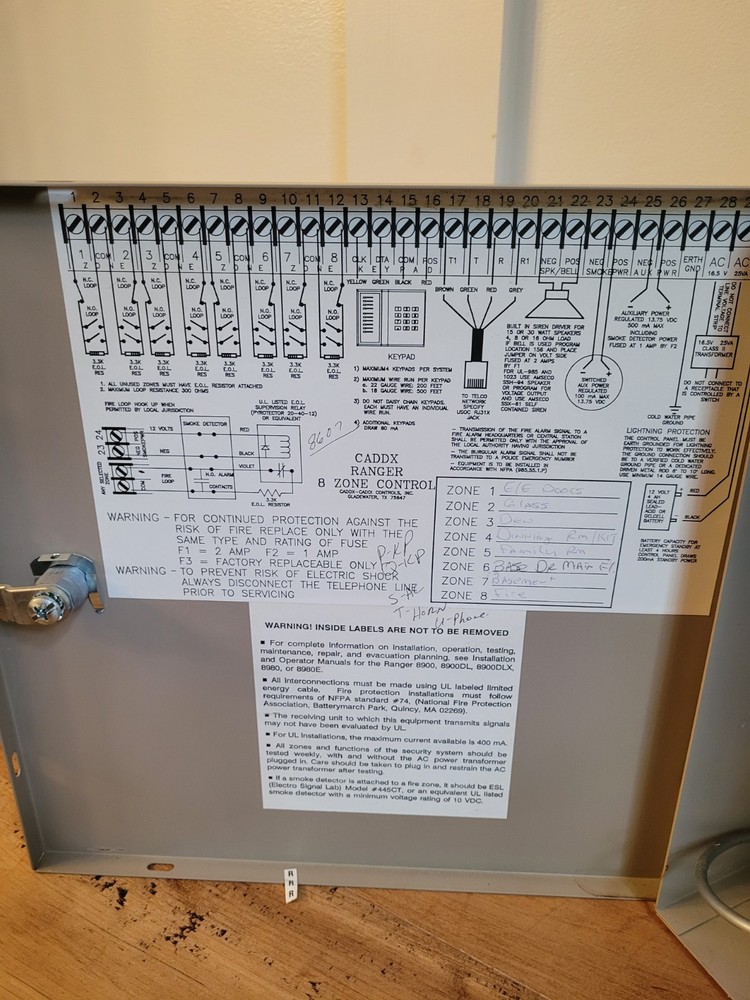 1 2 3 4 5 6 7 8 9 10 11 12 13 14 15 16 17 18 19 20 21 22 23 24 25 26 27 28
1 COM 2 3 COM 4 5 COM 6 7 COM 8 CLK DTA COM POS T1 T R R1 NEG POS NEG POS NEG POS ERTH AC AC
Z O N E Z O N E Z O N E Z O N E K E Y P A D SPK/BELL SMOKE PWR AUX PWR GND 16.5 V 25VA
N.C. LOOP N.C. LOOP N.C. LOOP N.C. LOOP N.C. LOOP N.C. LOOP N.C. LOOP N.C. LOOP
YELLOW GREEN BLACK RED
BROWN GREEN RED GREY
N.O. LOOP N.O. LOOP N.O. LOOP N.O. LOOP N.O. LOOP N.O. LOOP N.O. LOOP N.O. LOOP
3.3K E.O.L. RES 3.3K E.O.L. RES 3.3K E.O.L. RES 3.3K E.O.L. RES 3.3K E.O.L. RES 3.3K E.O.L. RES 3.3K E.O.L. RES 3.3K E.O.L. RES
1. ALL UNUSED ZONES MUST HAVE E.O.L. RESISTOR ATTACHED
2. MAXIMUM LOOP RESISTANCE 300 OHMS
KEYPAD
1) MAXIMUM 4 KEYPADS PER SYSTEM
2) MAXIMUM WIRE RUN PER KEYPAD
a. 22 GAUGE WIRE; 200 FEET
b. 18 GAUGE WIRE; 500 FEET
3) DO NOT DAISY CHAIN KEYPADS.
EACH MUST HAVE AN INDIVIDUAL
WIRE RUN.
4) ADDITIONAL KEYPADS
DRAW 80 mA
TO TELCO
NETWORK
SPECIFY
USOC RJ31X
JACK
BUILT IN SIREN DRIVER FOR
15 OR 30 WATT SPEAKERS
4, 8 OR 16 OHM LOAD
IF BELL IS USED PROGRAM
LOCATION 156 AND PLACE
JUMPER ON VOLT SIDE
FUSED AT 2 AMPS
BY F1
FOR UL-985 AND
1023 USE AMSECO
SSH-84 SPEAKER
OR PROGRAM FOR
VOLTAGE OUTPUT
AND USE AMSECO
SSX-61 SELF
CONTAINED SIREN
AUXILIARY POWER
REGULATED 13.75 VDC
500 mA MAX
INCLUDING
SMOKE DETECTOR POWER
FUSED AT 1 AMP BY F2
SWITCHED
AUX POWER
REGULATED
100 mA MAX
13.75 VDC
16.5V 25VA
CLASS II
TRANSFORMER
DO NOT CONNECT TO
A RECEPTACLE THAT
IS CONTROLLED BY A
SWITCH
COLD WATER PIPE
GROUND
LIGHTNING PROTECTION
THE CONTROL PANEL MUST BE
EARTH GROUNDED FOR LIGHTNING
PROTECTION TO WORK EFFECTIVELY.
THE GROUND CONNECTION SHOULD
BE TO A VERIFIED COLD WATER
GROUND PIPE OR A DEDICATED
DRIVEN METAL ROD 6' TO 10' LONG.
USE MINIMUM 14 GAUGE WIRE.
12 VOLT
4 AH
SEALED
LEAD-
ACID OR
GELCELL
BATTERY
RED
BLACK
BATTERY CAPACITY FOR
EMERGENCY STANDBY AT
LEAST 4 HOURS
CONTROL PANEL DRAWS
200mA STANDBY POWER
FIRE LOOP HOOK UP WHEN
PERMITTED BY LOCAL JURISDICTION
U.L. LISTED E.O.L.
SUPERVISION RELAY
(PYROTECTOR 20-40-12)
OR EQUIVALENT
23 24
ANY SELECTED ZONE
12 VOLTS
SMOKE DETECTOR
RED
NEG
BLACK
VIOLET
FIRE
LOOP
N.O. ALARM
CONTACTS
3.3K
E.O.L. RESISTOR
8607
CADDX
RANGER
8 ZONE CONTROL
CADDX-CADDI CONTROLS, INC.
GLADEWATER, TX 75647
- TRANSMISSION OF THE FIRE ALARM SIGNAL TO A
FIRE ALARM HEADQUARTERS OR CENTRAL STATION
SHALL BE PERMITTED ONLY WITH THE APPROVAL OF
THE LOCAL AUTHORITY HAVING JURISDICTION
- THE BURGULAR ALARM SIGNAL SHALL NOT BE
TRANSMITTED TO A POLICE EMERGENCY NUMBER
- EQUIPMENT IS TO BE INSTALLED IN
ACCORDANCE WITH NFPA
ZONE 1 E/E Doors
ZONE 2 Glass
ZONE 3 Den
ZONE 4 Dinning Rm/Kit
ZONE 5 Family Rm
ZONE 6 Base Dr Main
ZONE 7 Basement
ZONE 8 Fire
WARNING - FOR CONTINUED PROTECTION AGAINST THE
RISK OF FIRE REPLACE ONLY WITH THE
SAME TYPE AND RATING OF FUSE
F1 = 2 AMP F2 = 1 AMP
F3 = FACTORY REPLACEABLE ONLY
WARNING - TO PREVENT RISK OF ELECTRIC SHOCK
ALWAYS DISCONNECT THE TELEPHONE LINE
PRIOR TO SERVICING
P-KP
T-Horn
U-Phone
WARNING! INSIDE LABELS ARE NOT TO BE REMOVED
■ For complete information on installation, operation, testing,
maintenance, repair, and evacuation planning, see Installation
and Operator Manuals for the Ranger 8900, 8900DL, 8900DLX,
8980, or 8980E.
■ All Interconnections must be made using UL labeled limited
energy cable. Fire protection installations must follow
requirements of NFPA standard #74, (National Fire Protection
Association, Batterymarch Park, Quincy, MA 02269).
■ The receiving unit to which this equipment transmits signals
may not have been evaluated by UL.
■ For UL Installations, the maximum current available is 400 mA.
■ All zones and functions of the security system should be
tested weekly, with and without the AC power transformer
plugged in. Care should be taken to plug in and restrain the AC
power transformer after testing.
■ If a smoke detector is attached to a fire zone, it should be ESL
(Electro Signal Lab) Model #445CT, or an equivalent UL listed
smoke detector with a minimum voltage rating of 10 VDC.